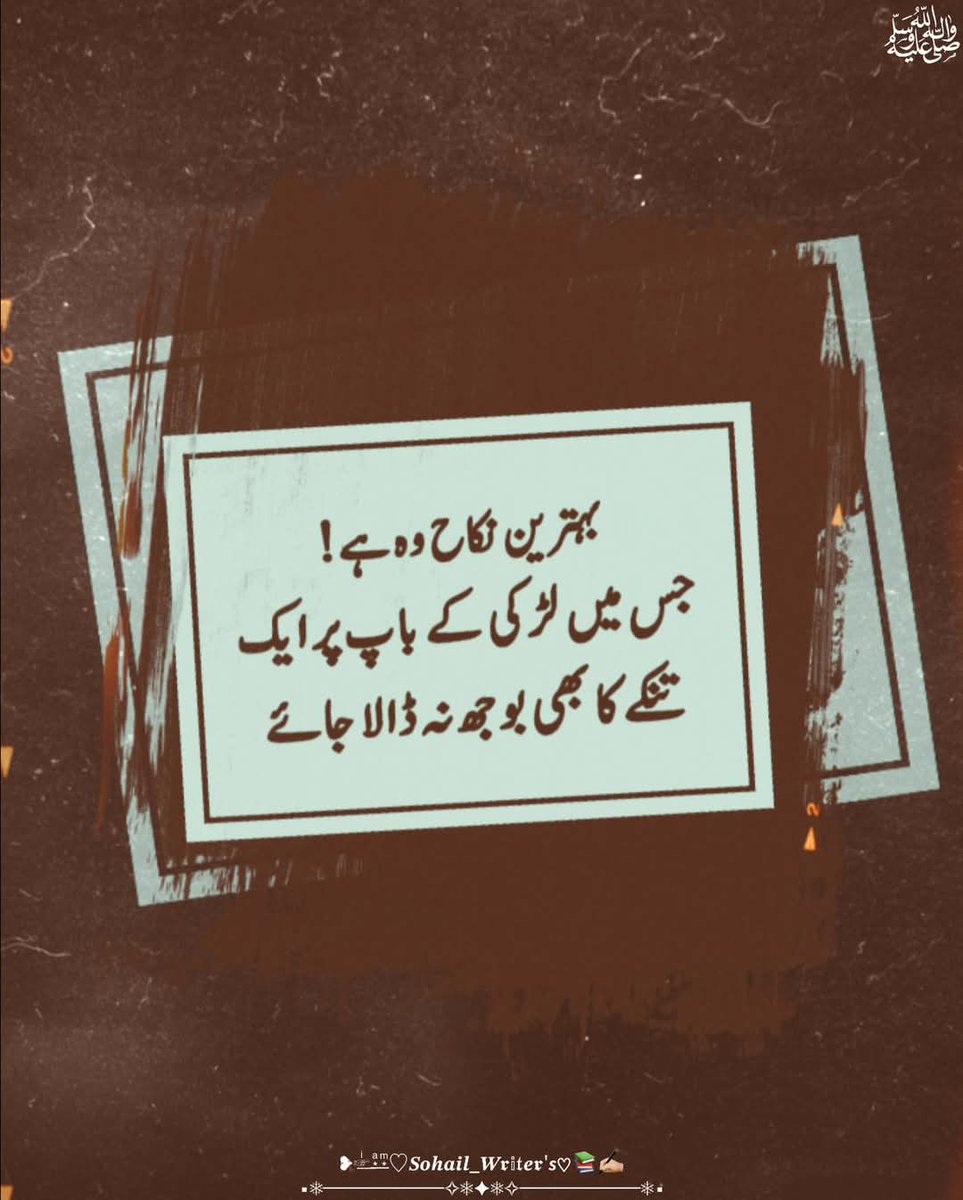 ﷺ
بہترین نکاح وہ ہے!
جس میں لڑکی کے باپ پر ایک
تنکے کا بھی بوجھ نہ ڈالا جائے
2
2
i am♡Sohail_Writer's♡📚✍🏼